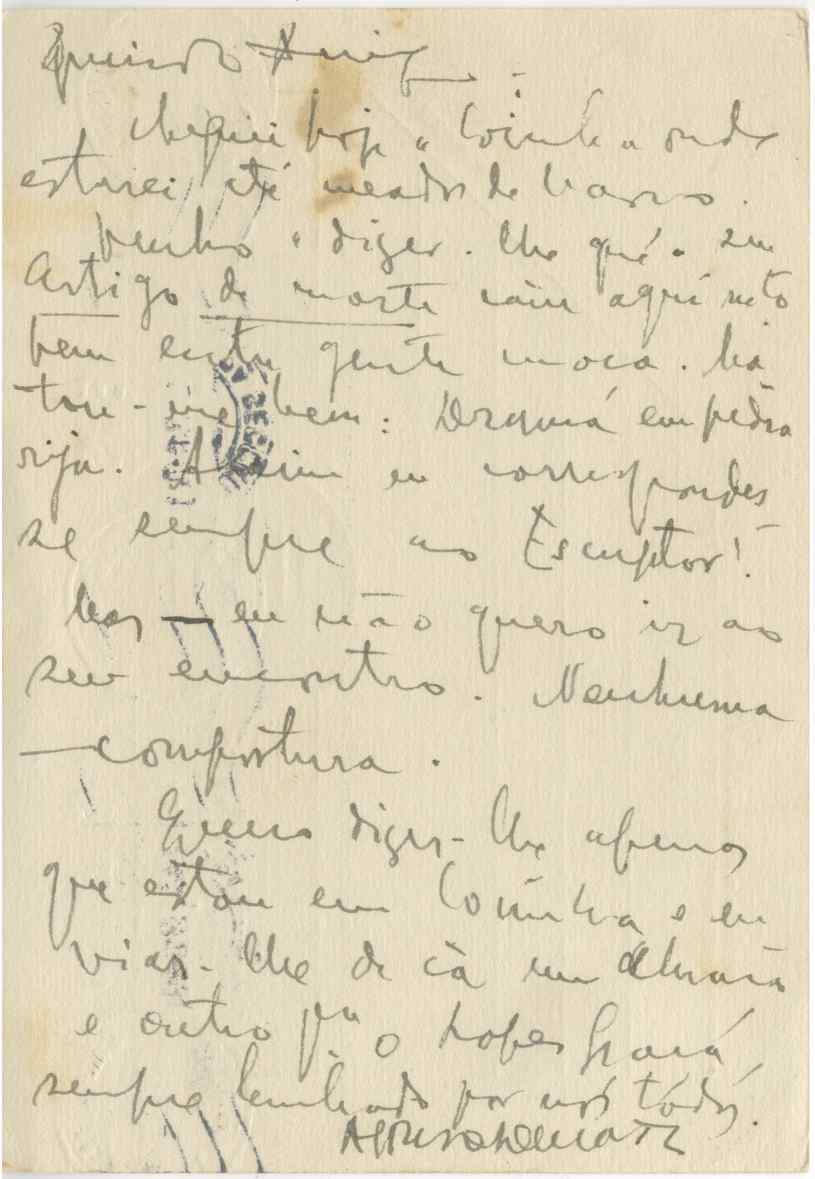 Querido Amigo
Cheguei hoje a Coimbra onde
estarei até meados de Março.
Venho a dizer-lhe que o seu
Artigo de morte caiu aqui mto
bem entre gente moça. Ba
teu-me bem: em pedra
rija. Assim eu correspondes
se sempre ao Escriptor!
Mas — eu não quero ir ao
seu encontro. Nenhuma
compostura.
Quero dizer-lhe apenas
que estou em Coimbra e en
viar-lhe de cá um abraço
e outro pª o Lopes Graça,
sempre lembrado por nós todos.
Afonso Duarte